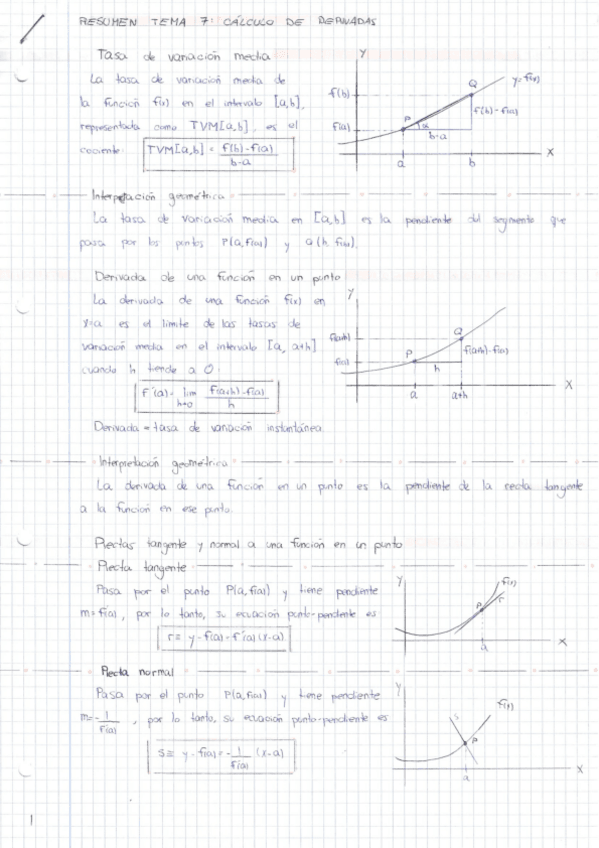 RESUMEN TEMA 7: CÁLCULO DE DERIVADAS
Tasa de variación media
La tasa de variación media de
la función f(x) en el intervalo [a,b],
representada como TVM[a,b], es el
cociente: TVM[a,b] = f(b)-f(a) / b-a
Y
f(b)
f(a)
P
Q
α
b-a
f(b)-f(a)
y=f(x)
a
b
X
Interpretación geométrica
La tasa de variación media en [a,b] es la pendiente del segmento que
pasa por los puntos P(a,f(a)) y
Derivada de una función en un punto
La derivada de una función f(x) en
x=a es el límite de las tasas de
variación media en el intervalo [a, a+h]
cuando h tiende a 0:
f'(a)= lim h→0 f(a+h)-f(a) / h
Y
f(a+h)
f(a)
P
Q
h
f(a+h)-f(a)
a
a+h
X
Derivada = tasa de variación instantánea.
Interpretación geométrica
La derivada de una función en un punto es la pendiente de la recta tangente
a la función en ese punto.
Rectas tangente y normal a una función en un punto
Recta tangente
Pasa por el punto P(a,f(a)) y tiene pendiente
m=f'(a), por lo tanto, su ecuación punto-pendiente es
r≡ y-f(a)=f'(a)(x-a)
Y
f(x)
P
r
a
X
Recta normal
Pasa por el punto P(a,f(a)) y tiene pendiente
m=-1/f'(a), por lo tanto, su ecuación punto-pendiente es
s≡ y-f(a)=-1/f'(a) (x-a)
Y
s
f(x)
P
a
X
1